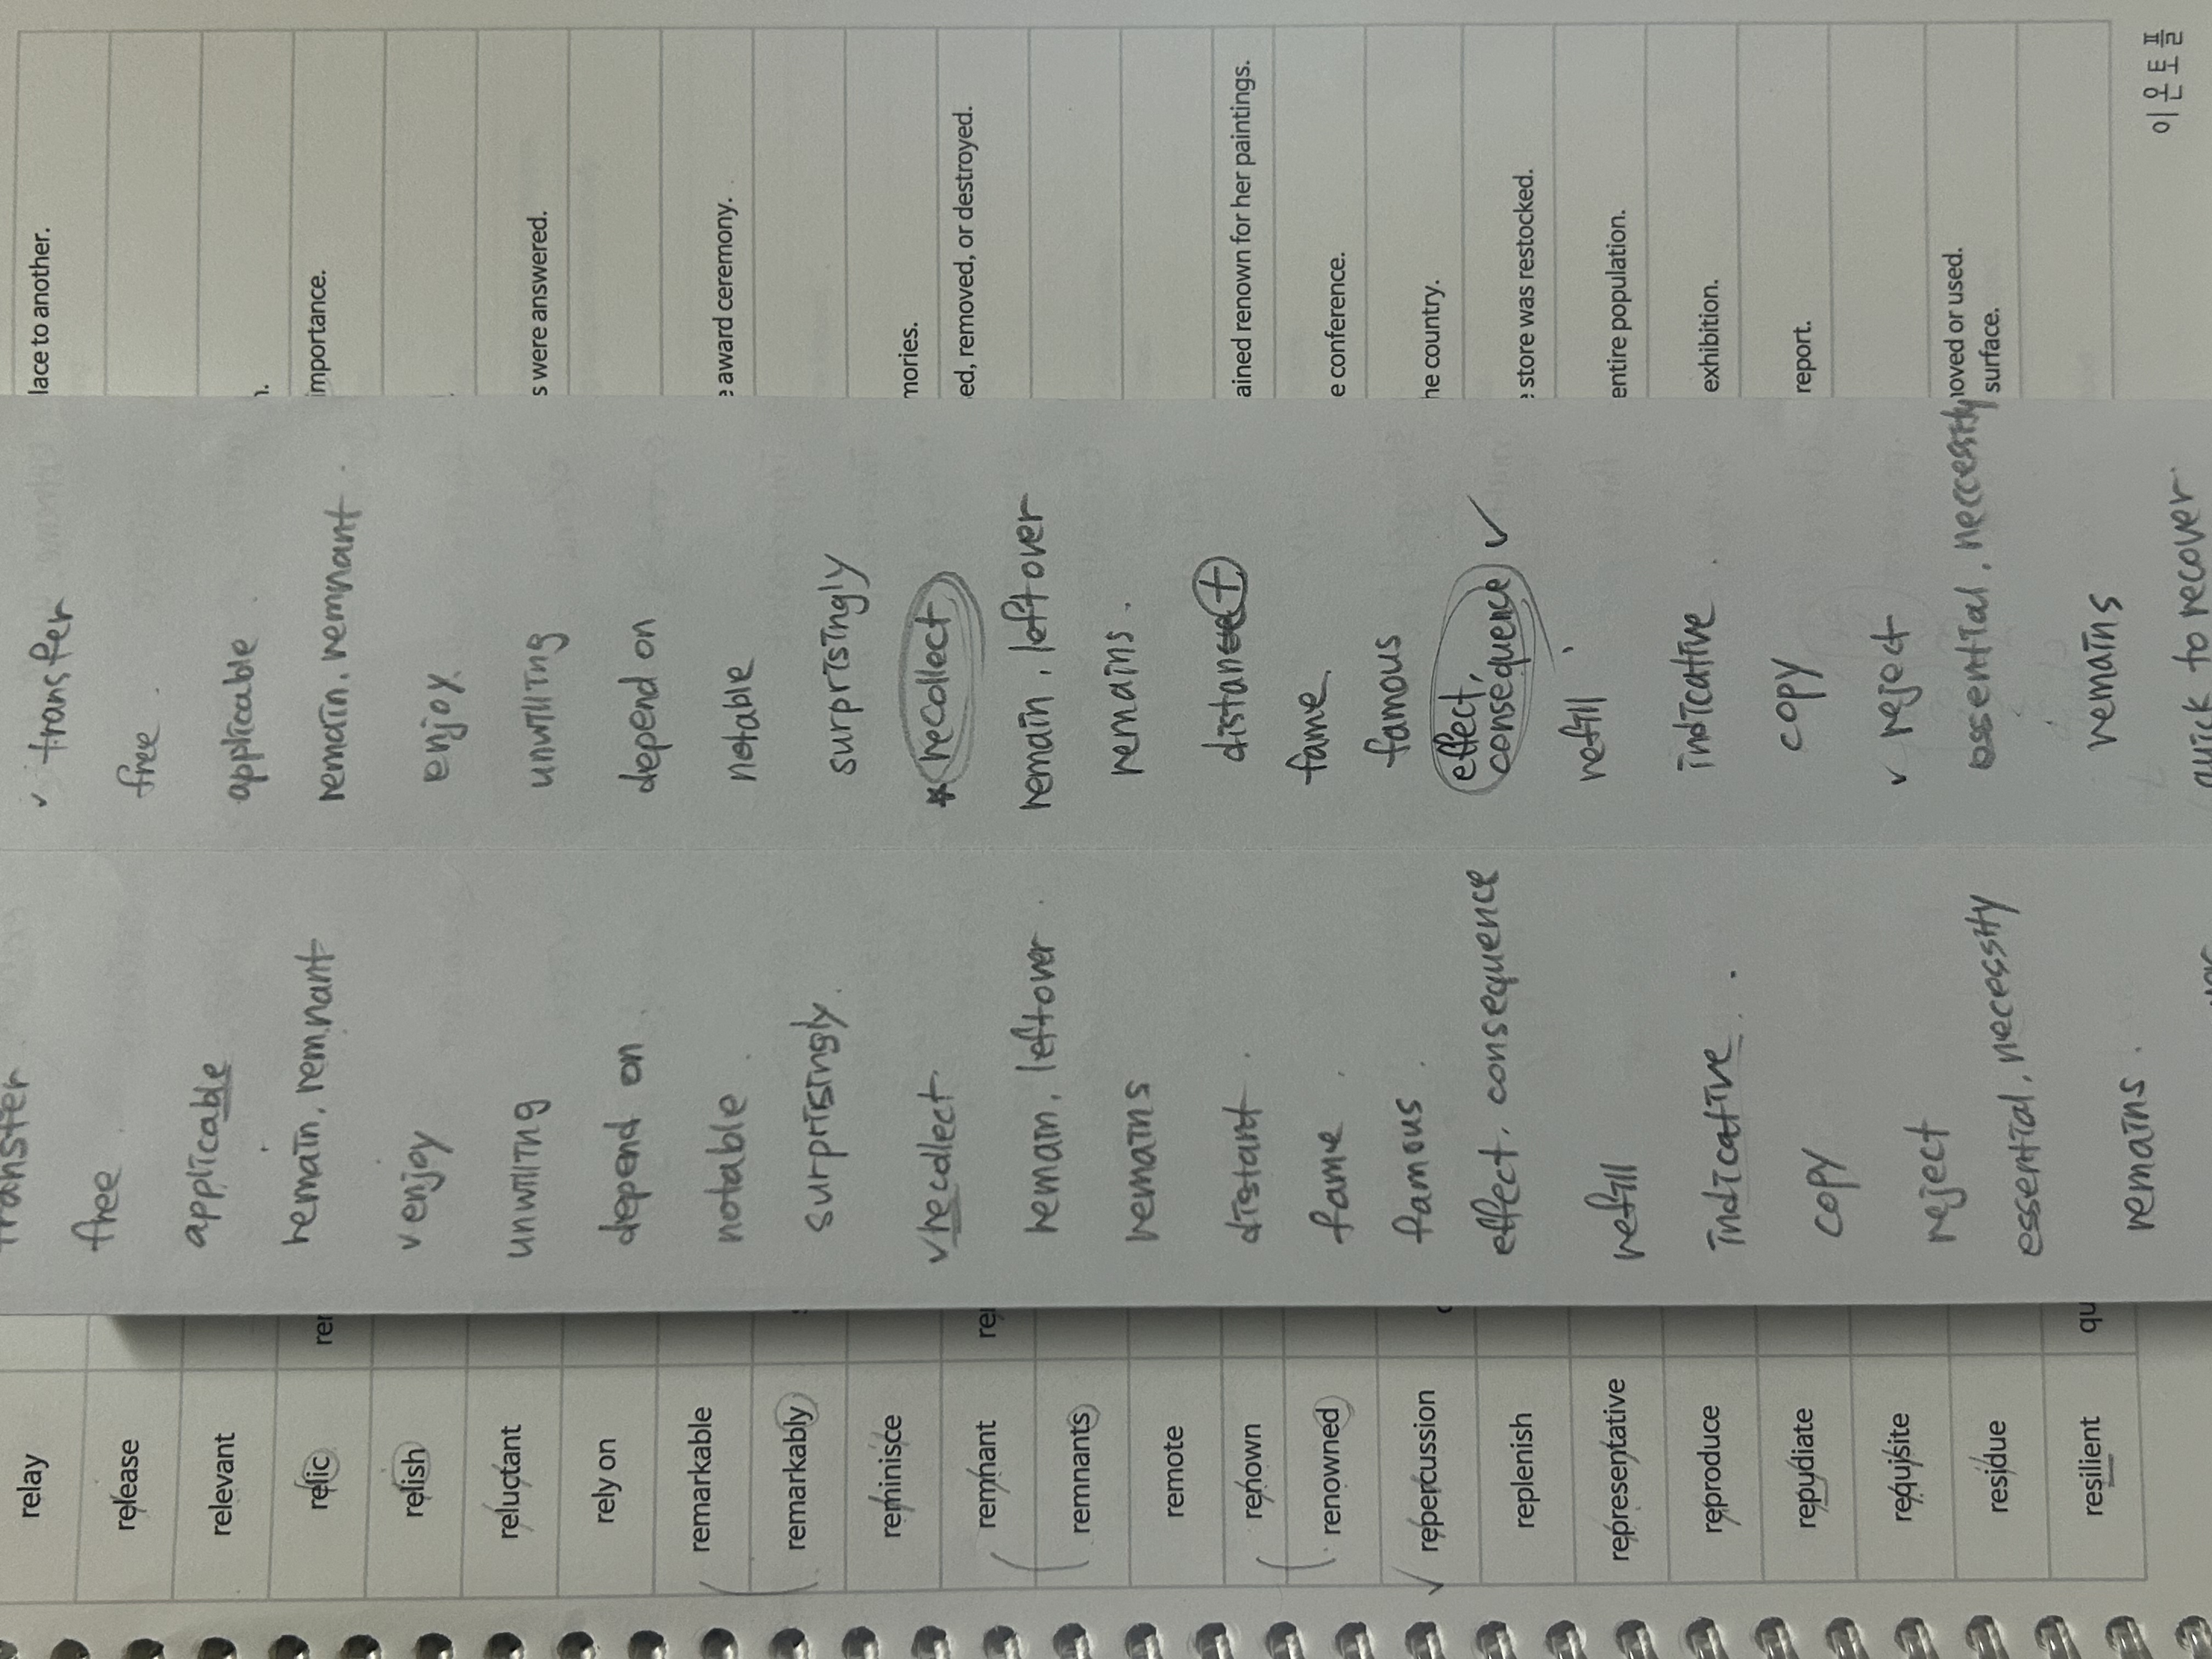 relay
release
relevant
relic
relish
reluctant
rely on
remarkable
remarkably
reminisce
remnant
remnants
remote
renown
renowned
repercussion
replenish
representative
reproduce
repudiate
requisite
residue
resilient
transfer
free
applicable
remain, remnant
v enjoy
unwilling
depend on
notable
surprisingly
v recollect
remain, leftover
remains
distant
fame
famous
effect, consequence
refill
indicative
copy
reject
essential, necessity
remains
✓ transfer
free
applicable
remain, remnant
enjoy
unwilling
depend on
notable
surprisingly
* recollect
remain, leftover
remains
distant
fame
famous
effect,
consequence ✓
refill
indicative
copy
✓ reject
essential, neccessity
remains
quick to recover
lace to another.
importance.
s were answered.
award ceremony.
mories.
ed, removed, or destroyed.
ained renown for her paintings.
e conference.
he country.
store was restocked.
entire population.
exhibition.
report.
moved or used.
surface.
이온토플